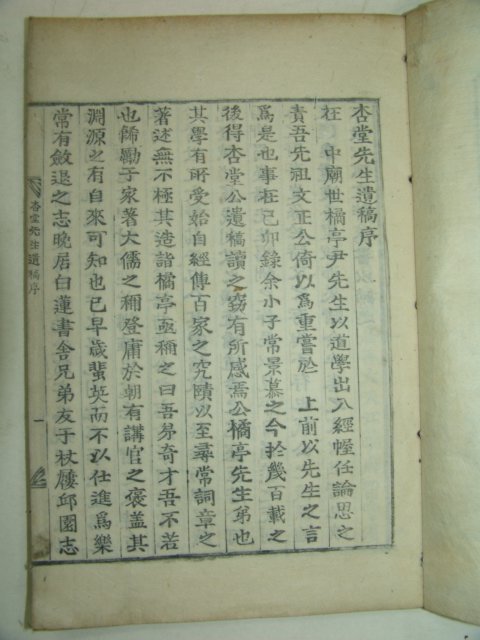 杏堂先生遺稿序
在　中廟世橘亭尹先生以道學出入經幄任論思之
責吾先祖文正公倚以爲重嘗於　上前以先生之言
爲是也事在己卯錄余小子常景慕之今於幾百載之
後得杏堂公遺稿讀之竊有所感焉公橘亭先生弟也
其學有所受始自經傳百家之究賾以至尋常詞章之
著述無不極其造詣橘亭亟稱之曰吾弟奇才吾不若
也飭勵子家著大儒之稱登庸於朝有講官之褒盖其
淵源之有自來可知也已早歲蜚英而不以仕進爲樂
常有斂退之志晩居白蓮書舍兄弟友于杖屨邱園志
杏堂先生遺稿序
一